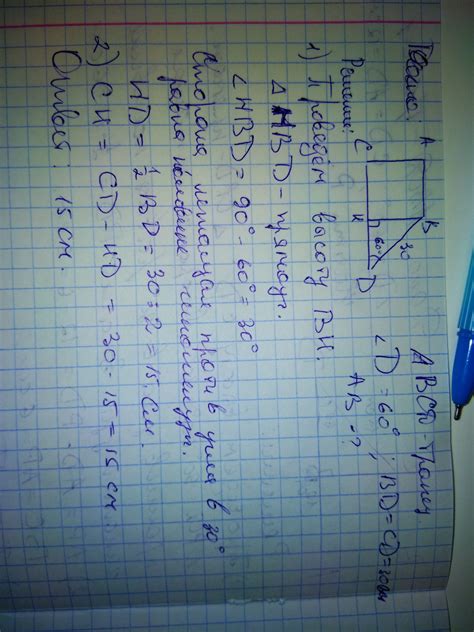 Дано: ABCD трапец
∠D = 60°; BD = CD = 30см
AB - ?
A
B
C
H
D
30
60°
Решение:
1) Проведём высоту BH.
△ HBD - прямоуг.
∠HBD = 90° - 60° = 30°
Сторона, лежащая против угла в 30°
равна половине гипотенузы.
HD = 1/2 BD = 30 : 2 = 15 см.
2) CH = CD - HD = 30 - 15 = 15 см.
Ответ: 15 см.